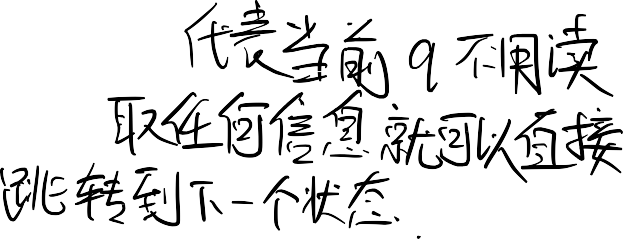 代表当前q不用读
取任何信息就可以直接
跳转到下一个状态.